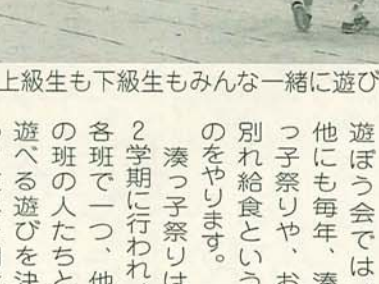 上級生も下級生もみんな一緒に遊び
遊ぼう会では
他にも毎年、湊
っ子祭りや、お
別れ給食という
のをやります。
湊っ子祭りは
2学期に行われ
各班で一つ、他
の班の人たちと
遊べる遊びを決